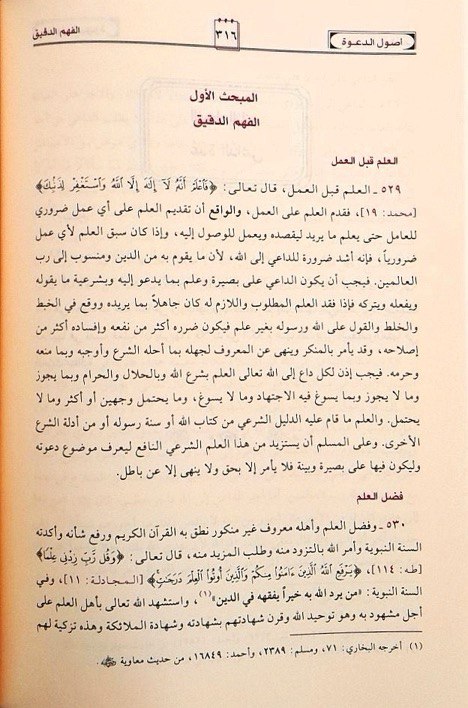 اصول الدعوة
٣١٦
الفهم الدقيق
المبحث الأول
الفهم الدقيق
العلم قبل العمل
٥٢٩ ـ العلم قبل العمل، قال تعالى: ﴿فَاعْلَمْ أَنَّهُ لَا إِلَهَ إِلَّا اللَّهُ وَاسْتَغْفِرْ لِذَنْبِكَ﴾
[محمد: ١٩]، فقدم العلم على العمل، والواقع أن تقديم العلم على أي عمل ضروري
للعامل حتى يعلم ما يريد ليقصده ويعمل للوصول إليه، وإذا كان سبق العلم لأي عمل
ضرورياً، فإنه أشد ضرورة للداعي إلى الله، لأن ما يقوم به من الدين ومنسوب إلى رب
العالمين. فيجب أن يكون الداعي على بصيرة وعلم بما يدعو إليه وبشرعية ما يقوله
ويفعله ويتركه فإذا فقد العلم المطلوب واللازم له كان جاهلاً بما يريده ووقع في الخبط
والخلط والقول على الله ورسوله بغير علم فيكون ضرره أكثر من نفعه وإفساده أكثر من
إصلاحه، وقد يأمر بالمنكر وينهى عن المعروف لجهله بما أحله الشرع وأوجبه وبما منعه
وحرمه. فيجب إذن لكل داع إلى الله تعالى العلم بشرع الله وبالحلال والحرام وبما يجوز
وما لا يجوز وبما يسوغ فيه الاجتهاد وما لا يسوغ، وما يحتمل وجهين أو أكثر وما لا
يحتمل. والعلم ما قام عليه الدليل الشرعي من كتاب الله أو سنة رسوله أو من أدلة الشرع
الأخرى. وعلى المسلم أن يستزيد من هذا العلم الشرعي النافع ليعرف موضوع دعوته
وليكون فيها على بصيرة وبينة فلا يأمر إلا بحق ولا ينهى إلا عن باطل.
فضل العلم
٥٣٠ ـ وفضل العلم وأهله معروف غير منكور نطق به القرآن الكريم ورفع شأنه وأكدته
السنة النبوية وأمر الله بالتزود منه وطلب المزيد منه، قال تعالى: ﴿وَقُل رَّبِّ زِدْنِي عِلْمًا﴾
[طه: ١١٤]، ﴿يَرْفَعِ اللَّهُ الَّذِينَ ءَامَنُوا مِنكُمْ وَالَّذِينَ أُوتُوا الْعِلْمَ دَرَجَتٍ﴾ [المجادلة: ١١]، وفي
السنة النبوية: «من يرد الله به خيراً يفقهه في الدين»(١)، واستشهد الله تعالى بأهل العلم على
أجل مشهود به وهو توحيد الله وقرن شهادتهم بشهادته وشهادة الملائكة وهذه تزكية لهم
(١) أخرجه البخاري: ٧١، ومسلم: ٢٣٨٩، وأحمد: ١٦٨٤٩، من حديث معاوية ﷺ.